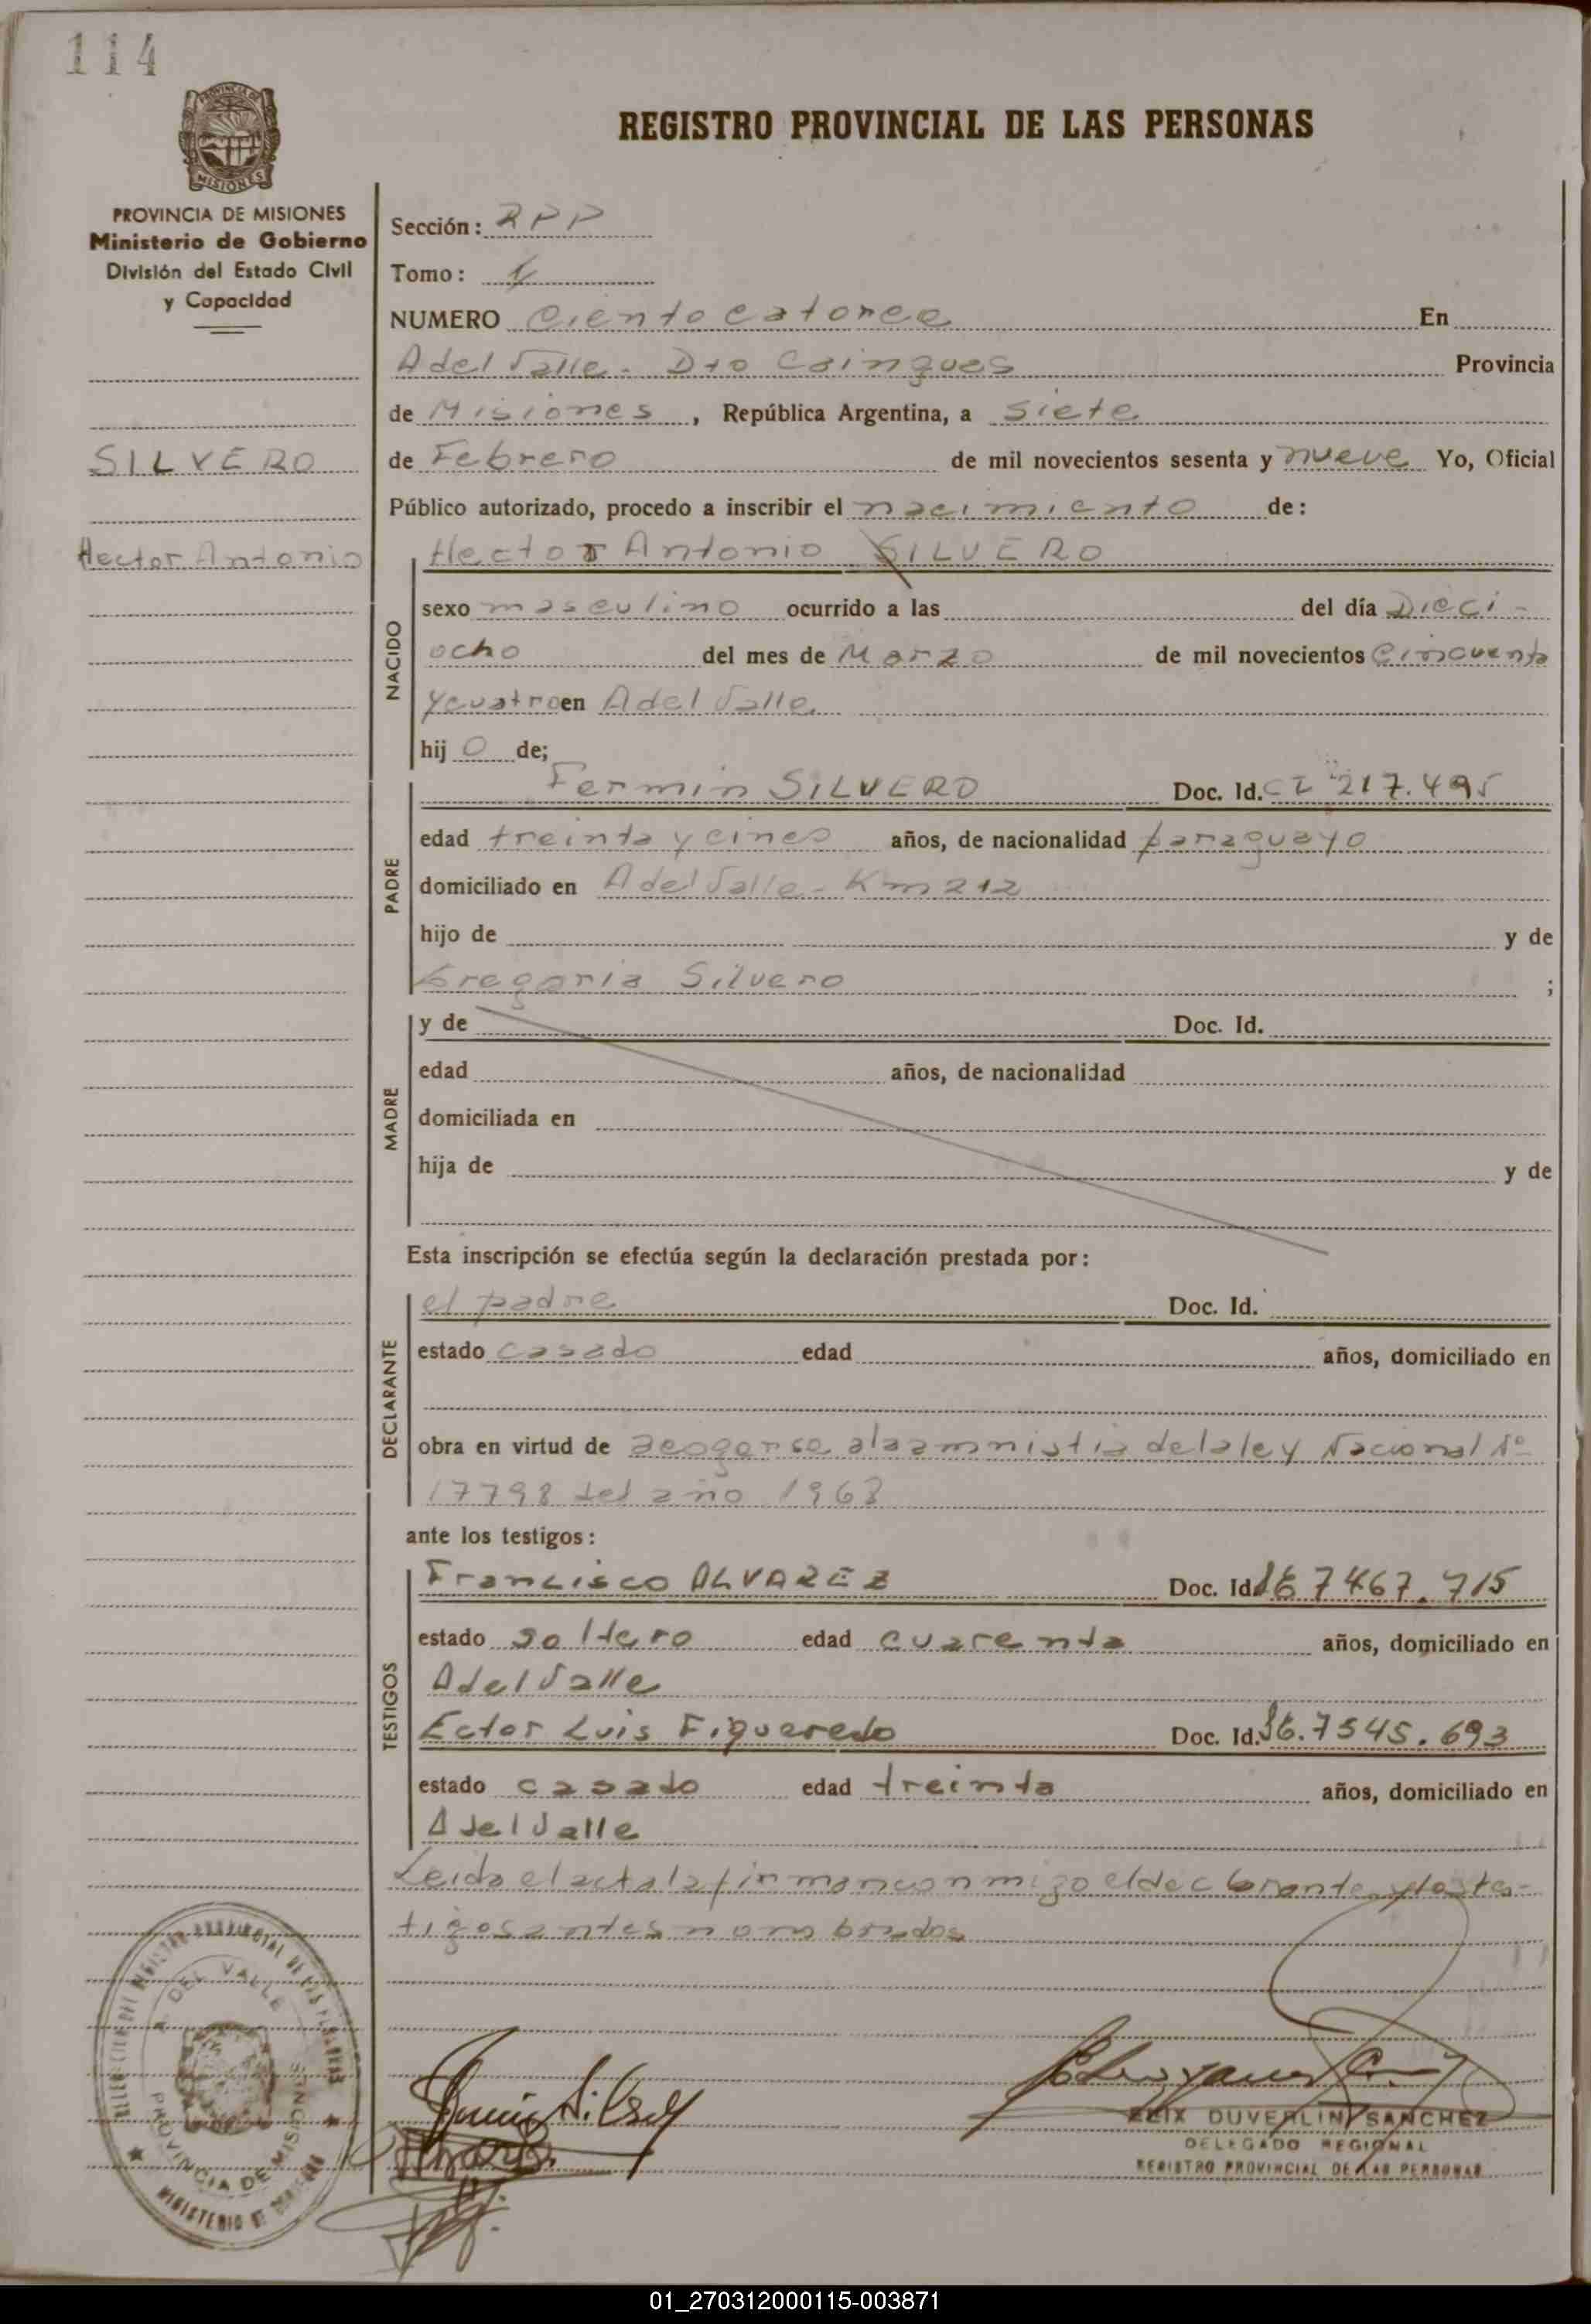 114
REGISTRO PROVINCIAL DE LAS PERSONAS
PROVINCIA DE
MISIONES
PROVINCIA DE MISIONES
Ministerio de Gobierno
División del Estado Civil
y Capacidad
SILVERO
Hector Antonio
Sección: RPP
Tomo:
NUMERO Ciento catorce En
A del Valle - Dto Cainguas Provincia
de Misiones, República Argentina, a Siete
de Febrero de mil novecientos sesenta y nueve Yo, Oficial
Público autorizado, procedo a inscribir el nacimiento de:
Hector Antonio SILVERO
NACIDO
sexo masculino ocurrido a las del día Dieci-
ocho del mes de Marzo de mil novecientos Cincuenta
y cuatro en A del Valle
hij o de;
PADRE
Fermin SILVERO Doc. Id. CI 217.495
edad treinta y cinco años, de nacionalidad paraguayo
domiciliado en A del Valle - Km 212
hijo de y de
Gregoria Silvero ;
MADRE
y de Doc. Id.
edad años, de nacionalidad
domiciliada en
hija de y de
Esta inscripción se efectúa según la declaración prestada por:
DECLARANTE
el padre Doc. Id.
estado casado edad años, domiciliado en
obra en virtud de acogerse a la amnistia de la ley Nacional Nº
17798 del año 1968
ante los testigos:
TESTIGOS
Francisco ALVAREZ Doc. Id. 7467.715
estado soltero edad cuarenta años, domiciliado en
A del Valle
Ector Luis Figueredo Doc. Id. 7545.693
estado casado edad treinta años, domiciliado en
A del Valle
Leida el acta la firman conmigo el declarante y los tes-
tigos antes nombrados
DEL REGISTRO PROVINCIAL DE LAS PERSONAS
A. DEL VALLE
PROVINCIA DE MISIONES
MINISTERIO DE GOBIERNO
FELIX DUVERLIN SANCHEZ
DELEGADO REGIONAL
REGISTRO PROVINCIAL DE LAS PERSONAS
01_270312000115-003871